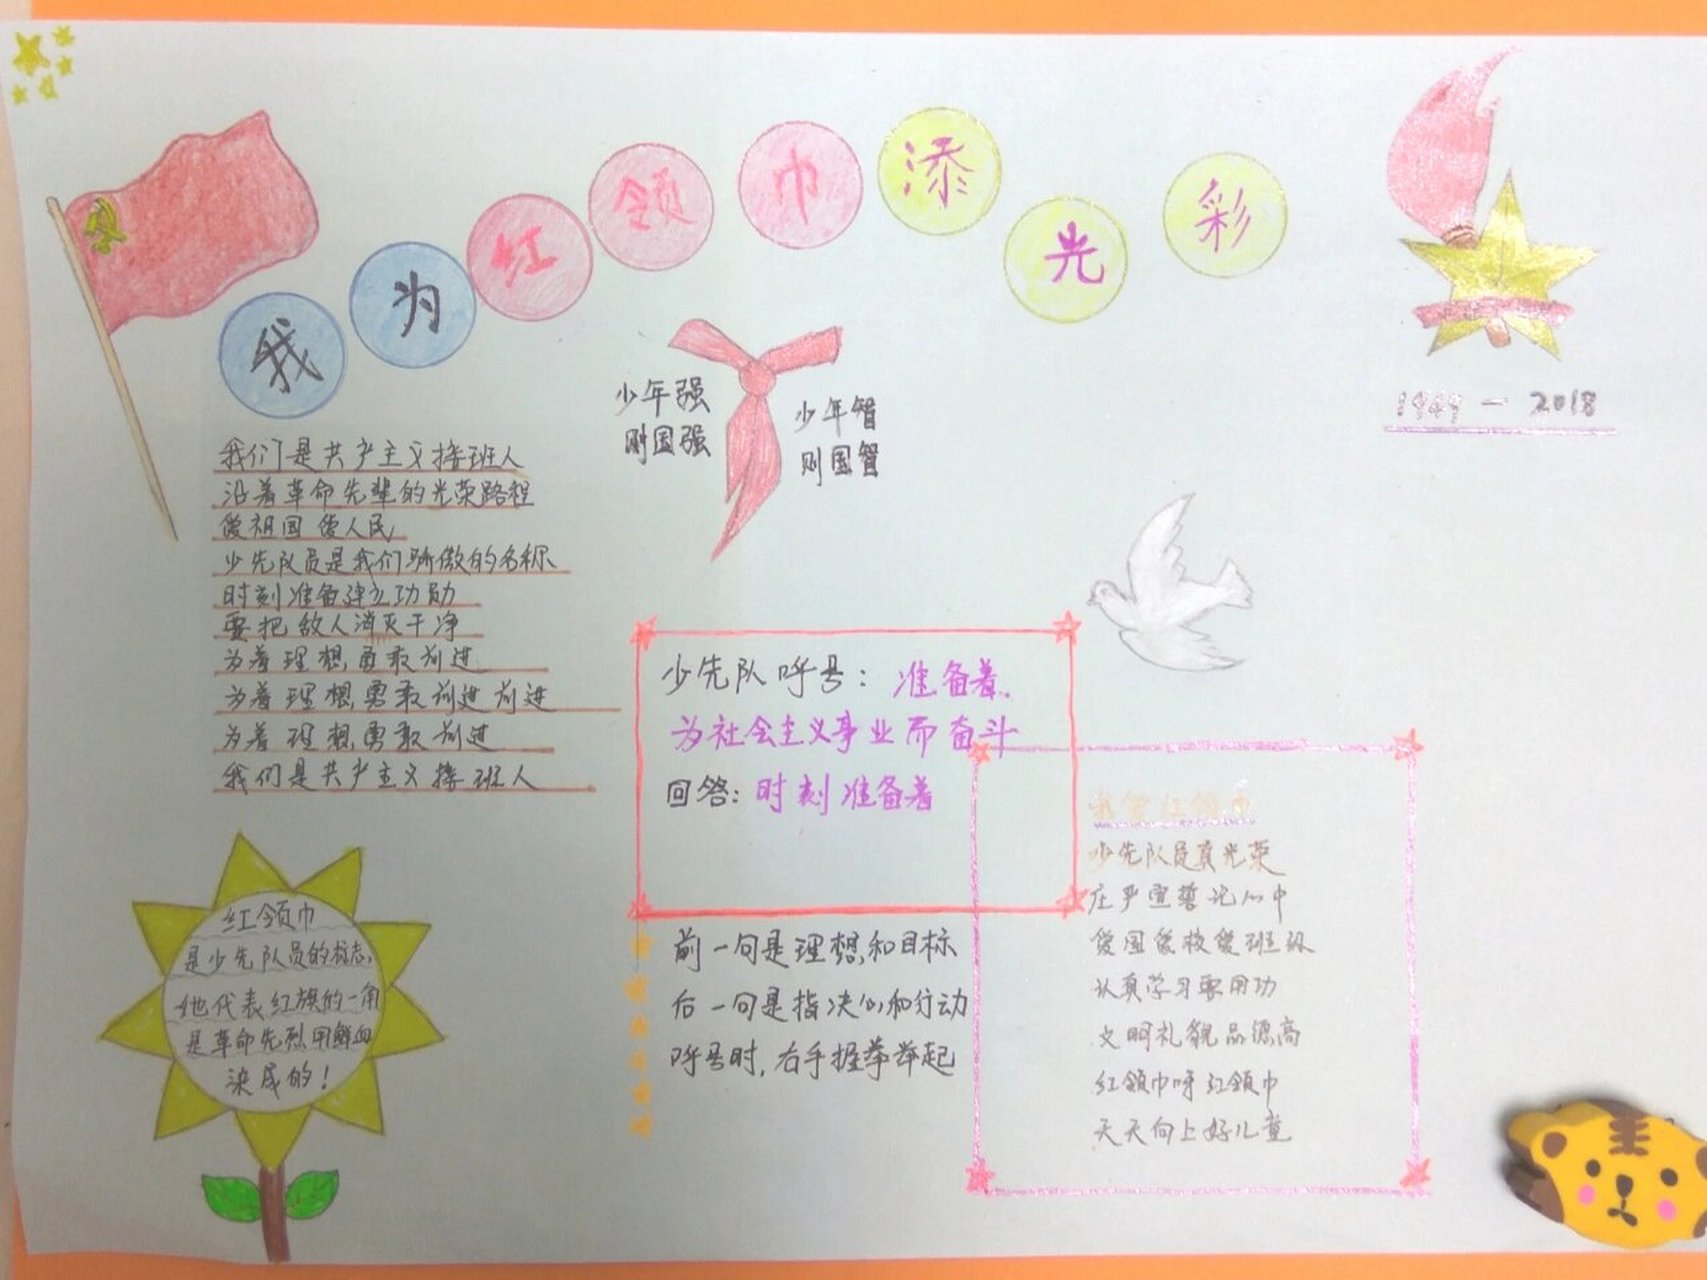 我为红领巾添光彩
1949-2018
少年强
则国强
少年智
则国智
我们是共产主义接班人
沿着革命先辈的光荣路程
爱祖国 爱人民
少先队员是我们骄傲的名称
时刻准备建立功勋
要把敌人消灭干净
为着理想勇敢前进
为着理想勇敢前进前进
为着理想勇敢前进
我们是共产主义接班人
少先队呼号：准备着、
为社会主义事业而奋斗
回答：时刻准备着
前一句是理想和目标
后一句是指决心和行动
呼号时，右手握拳举起
我爱红领巾
少先队员真光荣
庄严宣誓记心中
爱国爱校爱班级
认真学习要用功
文明礼貌品德高
红领巾呀红领巾
天天向上好儿童
红领巾
是少先队员的标志，
她代表红旗的一角
是革命先烈用鲜血
染成的！